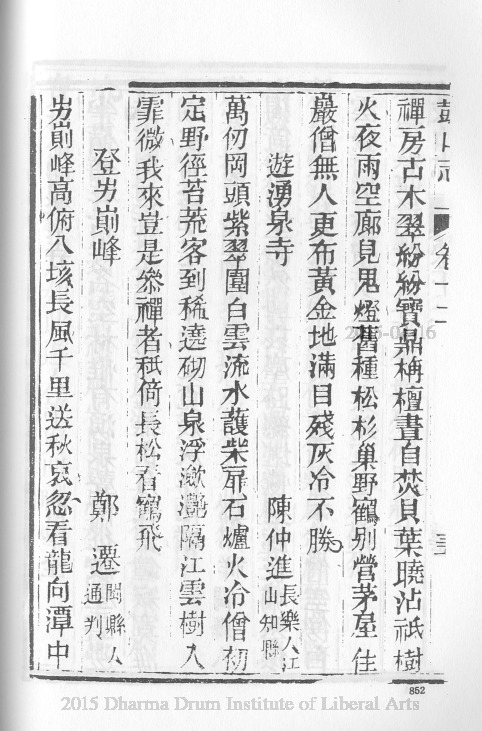 鼓山志 卷十二
禪房古木翠紛紛寶鼎栴檀晝自焚貝葉曉沾祇樹
火夜雨空廊見鬼燈舊種松杉巢野鶴別營茅屋住
巖僧無人更布黃金地滿目殘灰冷不勝
遊湧泉寺 陳仲進長樂人江山知縣
萬仞岡頭紫翠圍白雲流水護柴扉石爐火冷僧初
定野徑苔荒客到稀遶砌山泉浮瀲灧隔江雲樹入
霏微我來豈是叅禪者秪倚長松看鶴飛
登屴崱峰 鄭遷閩縣人通判
屴崱峰高俯八垓長風千里送秋哀忽看龍向潭中
852
2015-06-16
2015 Dharma Drum Institute of Liberal Arts